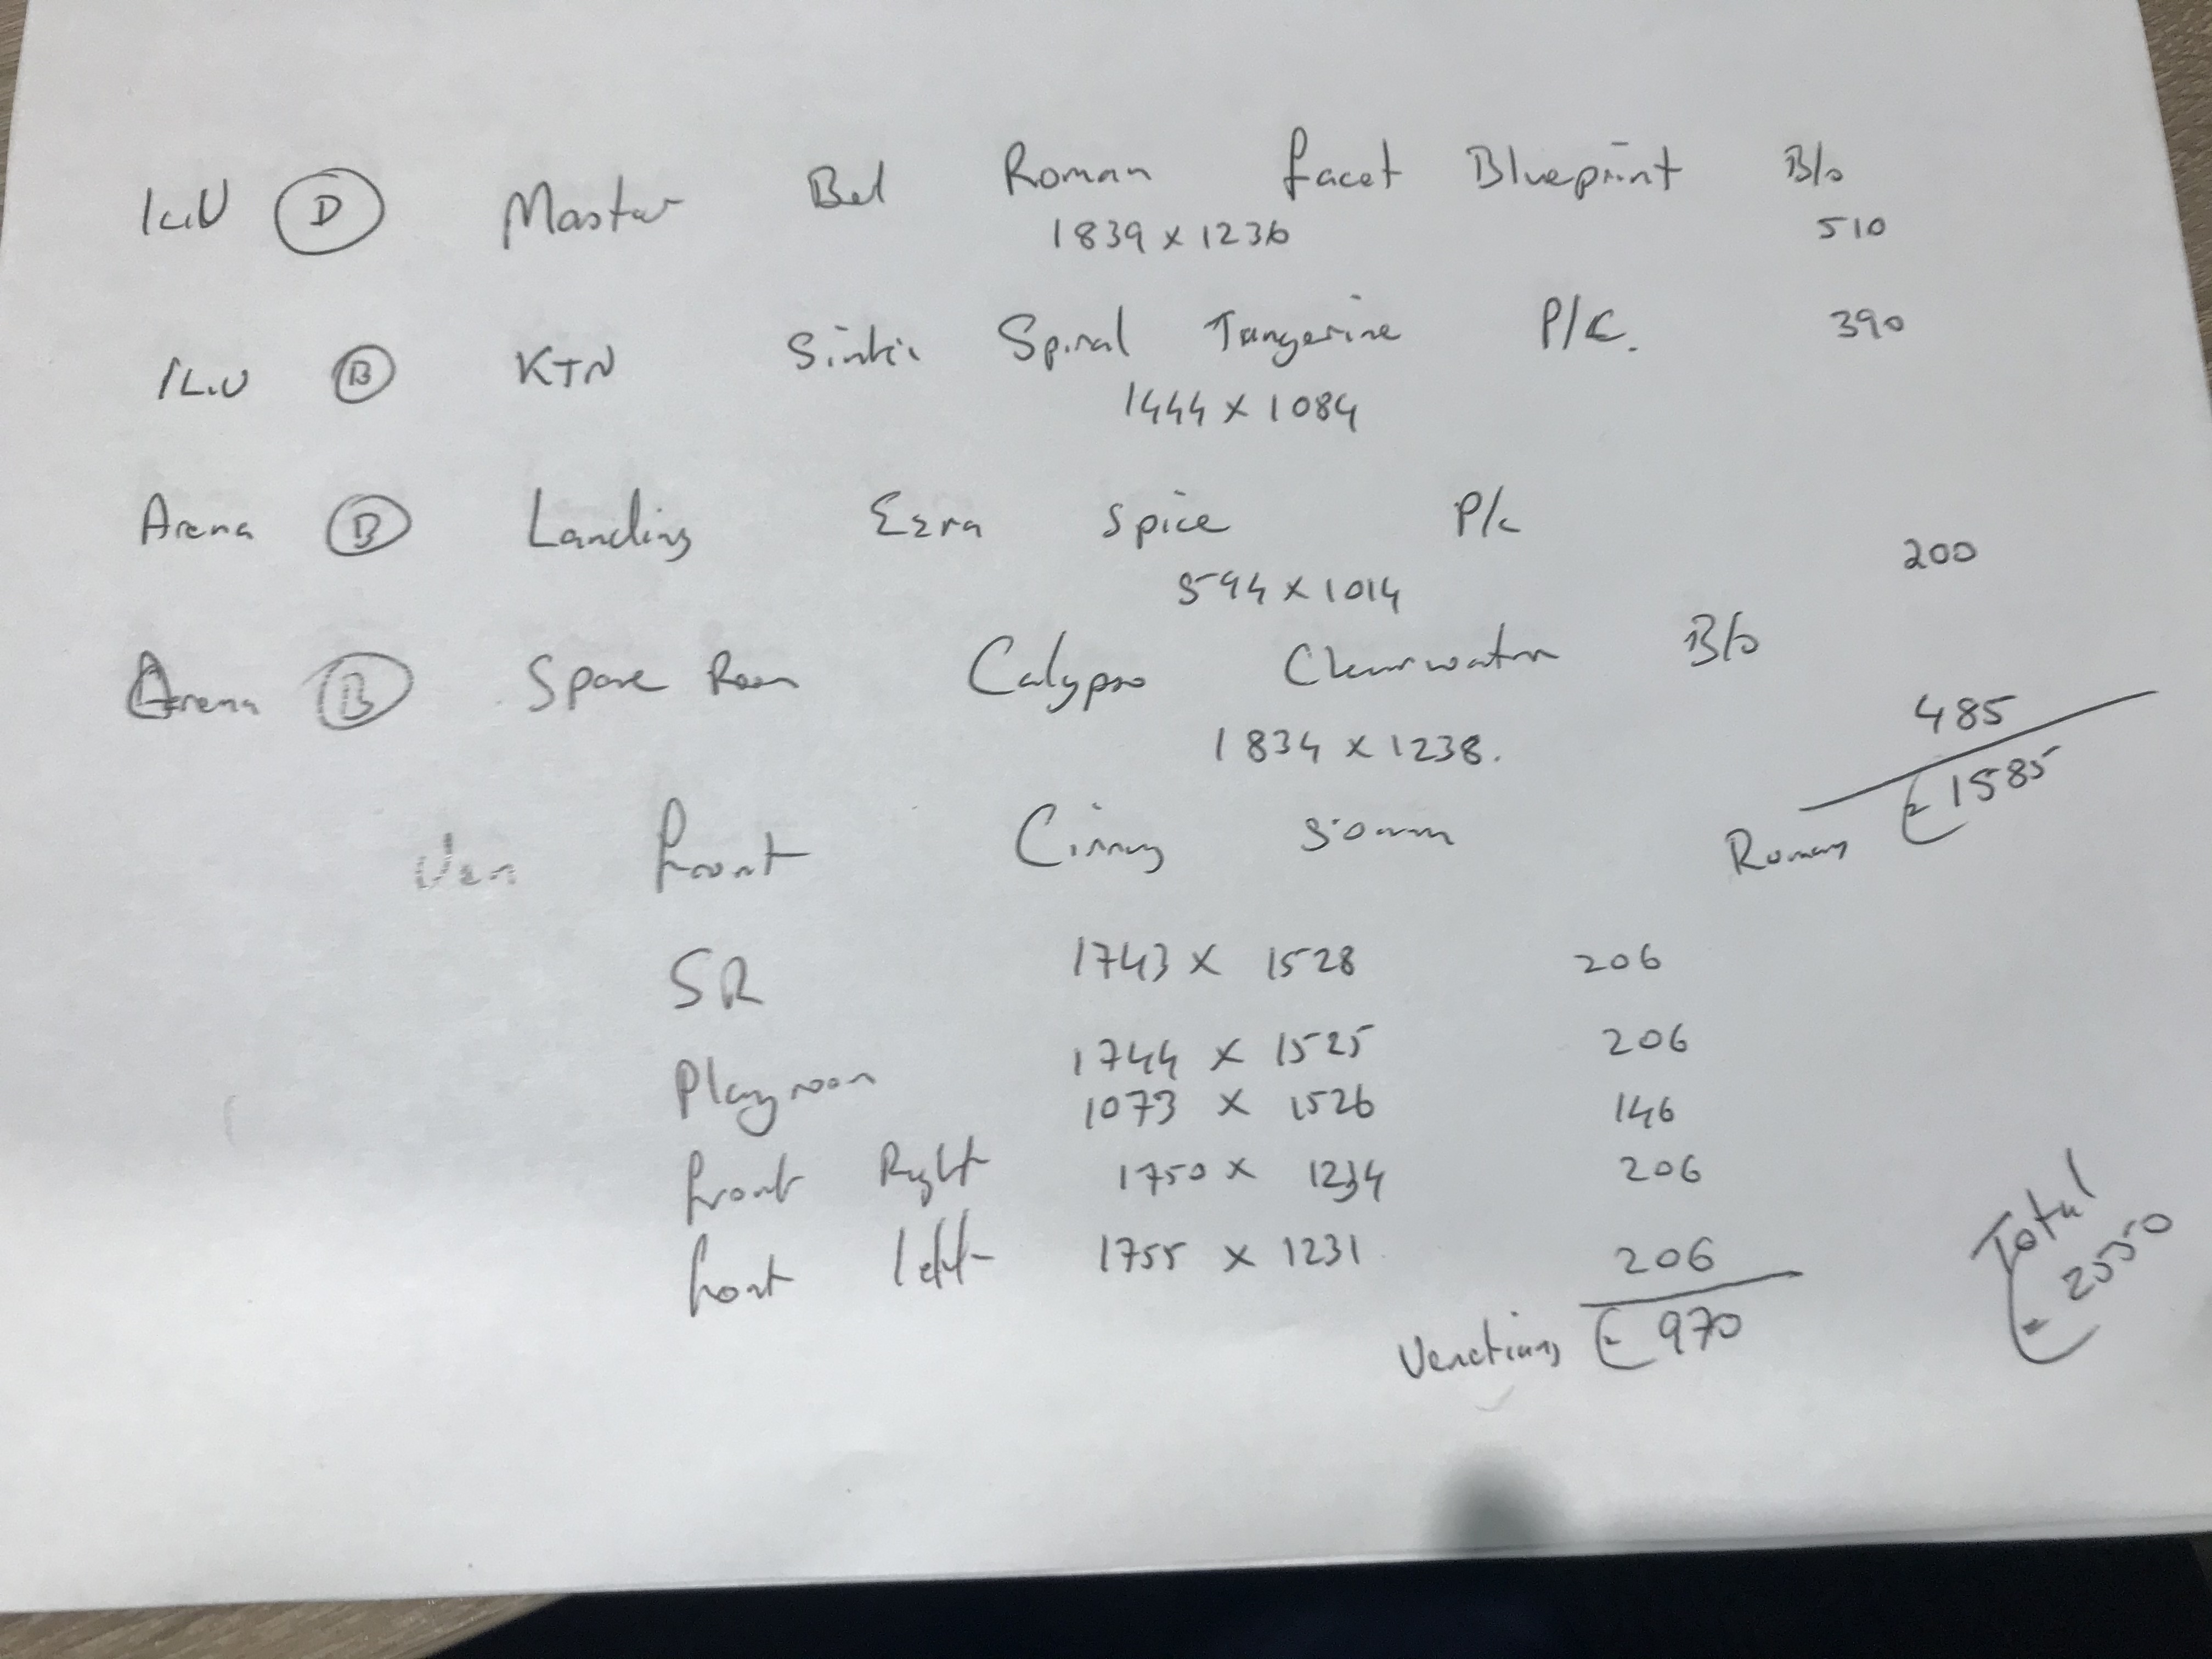 ILIV D Master Bed Roman Facet Blueprint B/o
1839 x 1236 510
ILIV B KTN Spiral Tangerine P/C. 390
1444 x 1084
Arena B Landing Ezra Spice P/c
594 x 1014 200
Arena B Spare Room Calypso Clearwater B/o
1834 x 1238. 485
Romans £1585
Ven Front 50mm
SR 1743 x 1528 206
Playroom 1744 x 1525 206
1073 x 1526 146
Front Right 1750 x 1234 206
Front left 1755 x 1231 206
Venetians £970
Total £2550